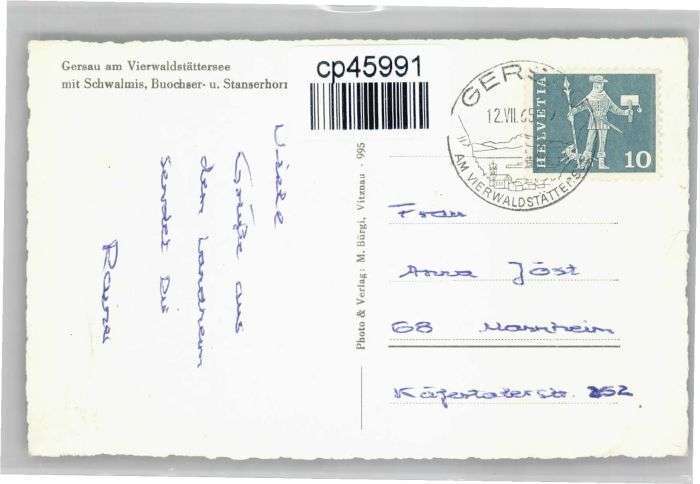 Gersau am Vierwaldstättersee
mit Schwalmis, Buochser- u. Stanserhorn
cp45991
GERS
12.VII.65
AM VIERWALDSTÄTTERS
HELVETIA
10
Photo & Verlag: M. Bürgi, Vitznau - 995
Viele
Grüße aus
dem Landheim
sendet Dir
Rainer
Frau
Anna Jöst
68 Mannheim
Käfertalerstr. 252